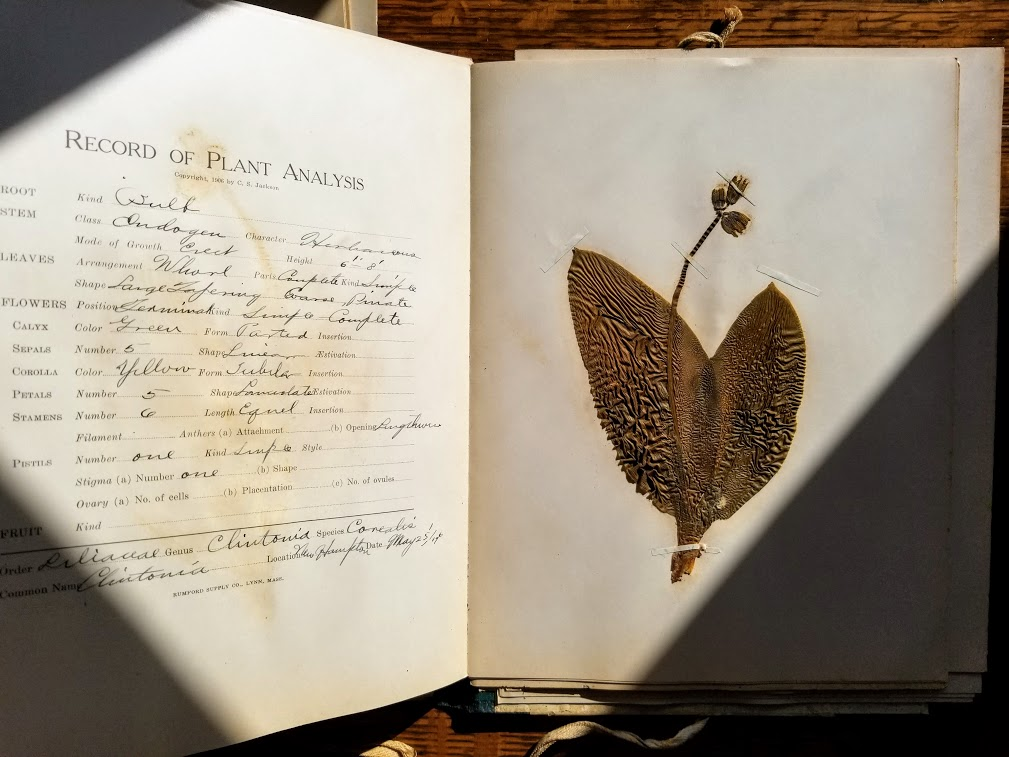 RECORD OF PLANT ANALYSIS
Copyright, 1906 by C. S. Jackson
ROOT Kind Bulb
STEM Class Endogen Character Herbaceous
Mode of Growth Erect Height 6" 8"
LEAVES Arrangement Whorl Parts Complete Kind Simple
Shape Large Tapering
FLOWERS Position Terminal Kind Simple Complete
CALYX Color Green Form Parted Insertion
SEPALS Number 5 Shape Linear Æstivation
COROLLA Color Yellow Form Tubular Insertion
PETALS Number 5 Shape Æstivation
STAMENS Number 6 Length Equel Insertion
Filament Anthers (a) Attachment (b) Opening Lengthwise
PISTILS Number one Kind Simple Style
Stigma (a) Number one (b) Shape
Ovary (a) No. of cells (b) Placentation (c) No. of ovules
FRUIT Kind
Order Liliaceae Genus Clintonia Species Borealis
Common Name Clintonia Location New Hampton Date May 25/
RUMFORD SUPPLY CO., LYNN, MASS.